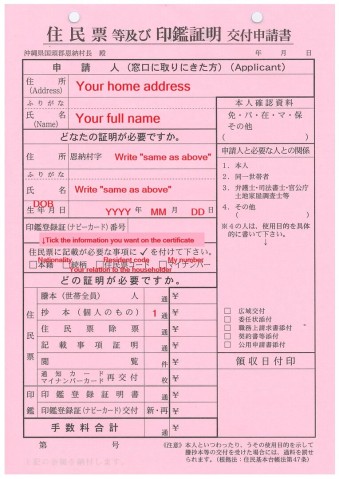 住民票等及び印鑑証明交付申請書
沖縄県国頭郡恩納村長 殿 年 月 日
申請人（窓口に取りにきた方）(Applicant)
住所 (Address) Your home address
ふりがな
氏名 (Name) Your full name
本人確認資料
先・パ・在・マ・保
その他
( )
どなたの証明が必要ですか。
申請人と必要な人との関係
住所 恩納村字 Write "same as above"
ふりがな
氏名 Write "same as above"
DOB
生年月日 YYYY 年 MM 月 DD 日
1．本人
2．同一世帯者
3．弁護士・司法書士・官公庁
土地家屋調査士等
4．その他
( )
※４の人は、使用目的を具体
的に書いて下さい。
印鑑登録証（ナビーカード）番号
↓Tick the information you want on the certificate
住民票に記載が必要な事項に✓を付けて下さい。
Nationality Resident code My number
□本籍 □続柄 □住民票コード □マイナンバー
Your relation to the householder
どの証明が必要ですか。
住民票
謄本（世帯全員） 通 ¥
抄本（個人のもの） 1 通 ¥
住民票除票 通 ¥
記載事項証明 通 ¥
閲覧 件 ¥
通知カード
マイナンバーカード 再交付 枚 ¥
印鑑
印鑑登録証明書 通 ¥
印鑑登録証(ナビーカード)交付 新・再 ¥
手数料合計 ¥
□ 広域交付
□ 委任状添付
□ 職務上請求書添付
□ 契約書等添付
□ 公用申請書添付
領収日付印
第 号
《注意》本人といつわったり、うその使用目的を示して
謄抄本等の交付を受けた場合には、過料を課せ
られます。（根拠法：住民基本台帳法第47条）